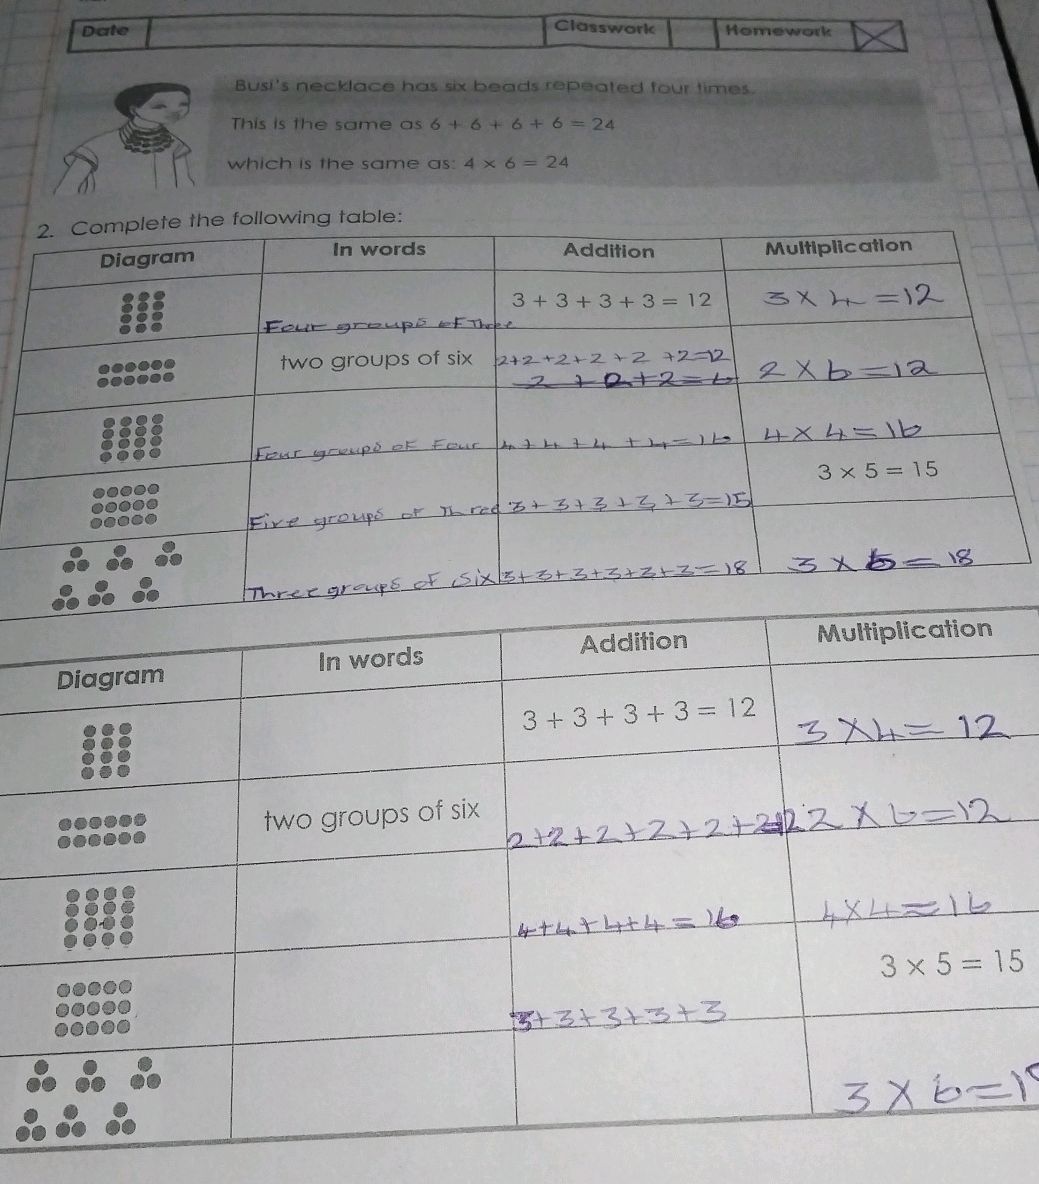 Date Classwork Homework
Busi's necklace has six beads repeated four times.
This is the same as 6 + 6 + 6 + 6 = 24
which is the same as: 4 × 6 = 24
2. Complete the following table:
Diagram In words Addition Multiplication
Four groups of Three 3 + 3 + 3 + 3 = 12 3 × 4 = 12
two groups of six 2+2+2+2+2+2=12 2 × 6 = 12
2+2+2=6
Four groups of Four 4+4+4+4=16 4 × 4 = 16
3 × 5 = 15
Five groups of Three 3+3+3+3+3=15
Three groups of Six 3+3+3+3+3+3=18 3 × 6 = 18
Diagram In words Addition Multiplication
3 + 3 + 3 + 3 = 12 3 × 4 = 12
two groups of six 2+2+2+2+2+2=12 2 × 6 = 12
4+4+4+4=16 4×4=16
3 × 5 = 15
3+3+3+3+3
3 × 6 = 18